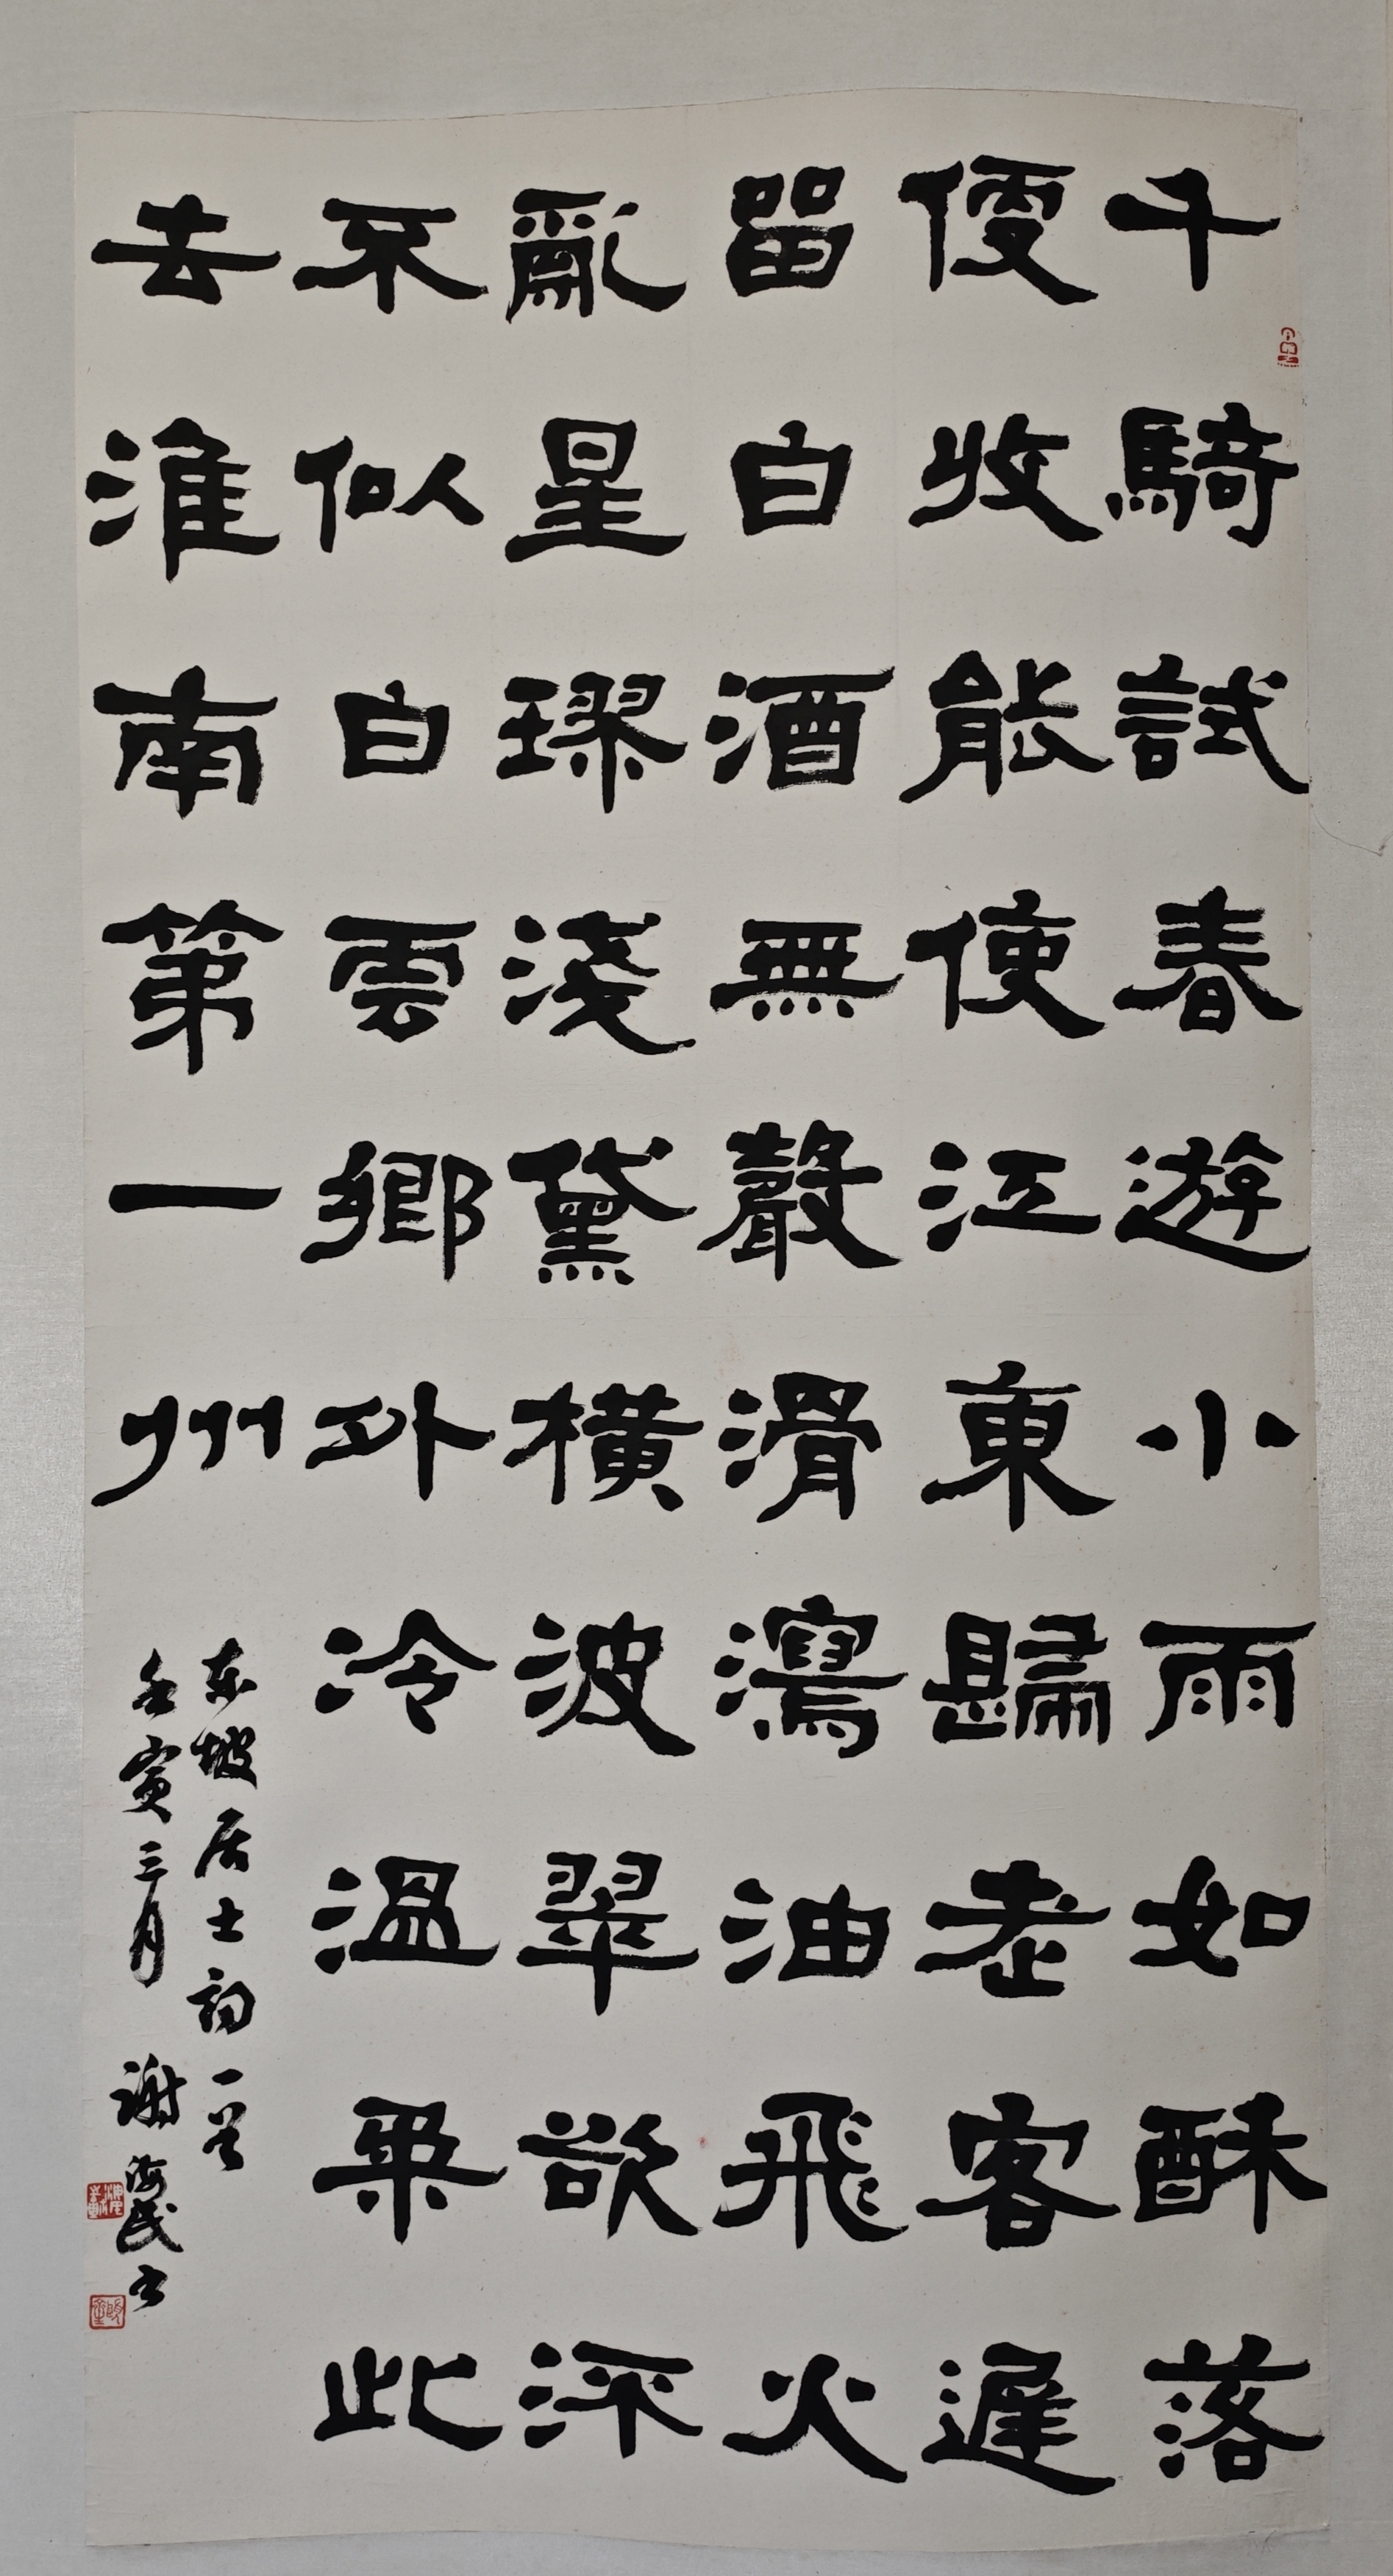 千騎試春遊小雨如酥落
便收能使江東歸老客遲
留白酒無聲滑瀉油飛火
亂星璆淺黛橫波翠欲深
不似白雲鄉外冷溫柔此
去淮南第一州
东坡居士詞一首
壬寅三月 谢海民书